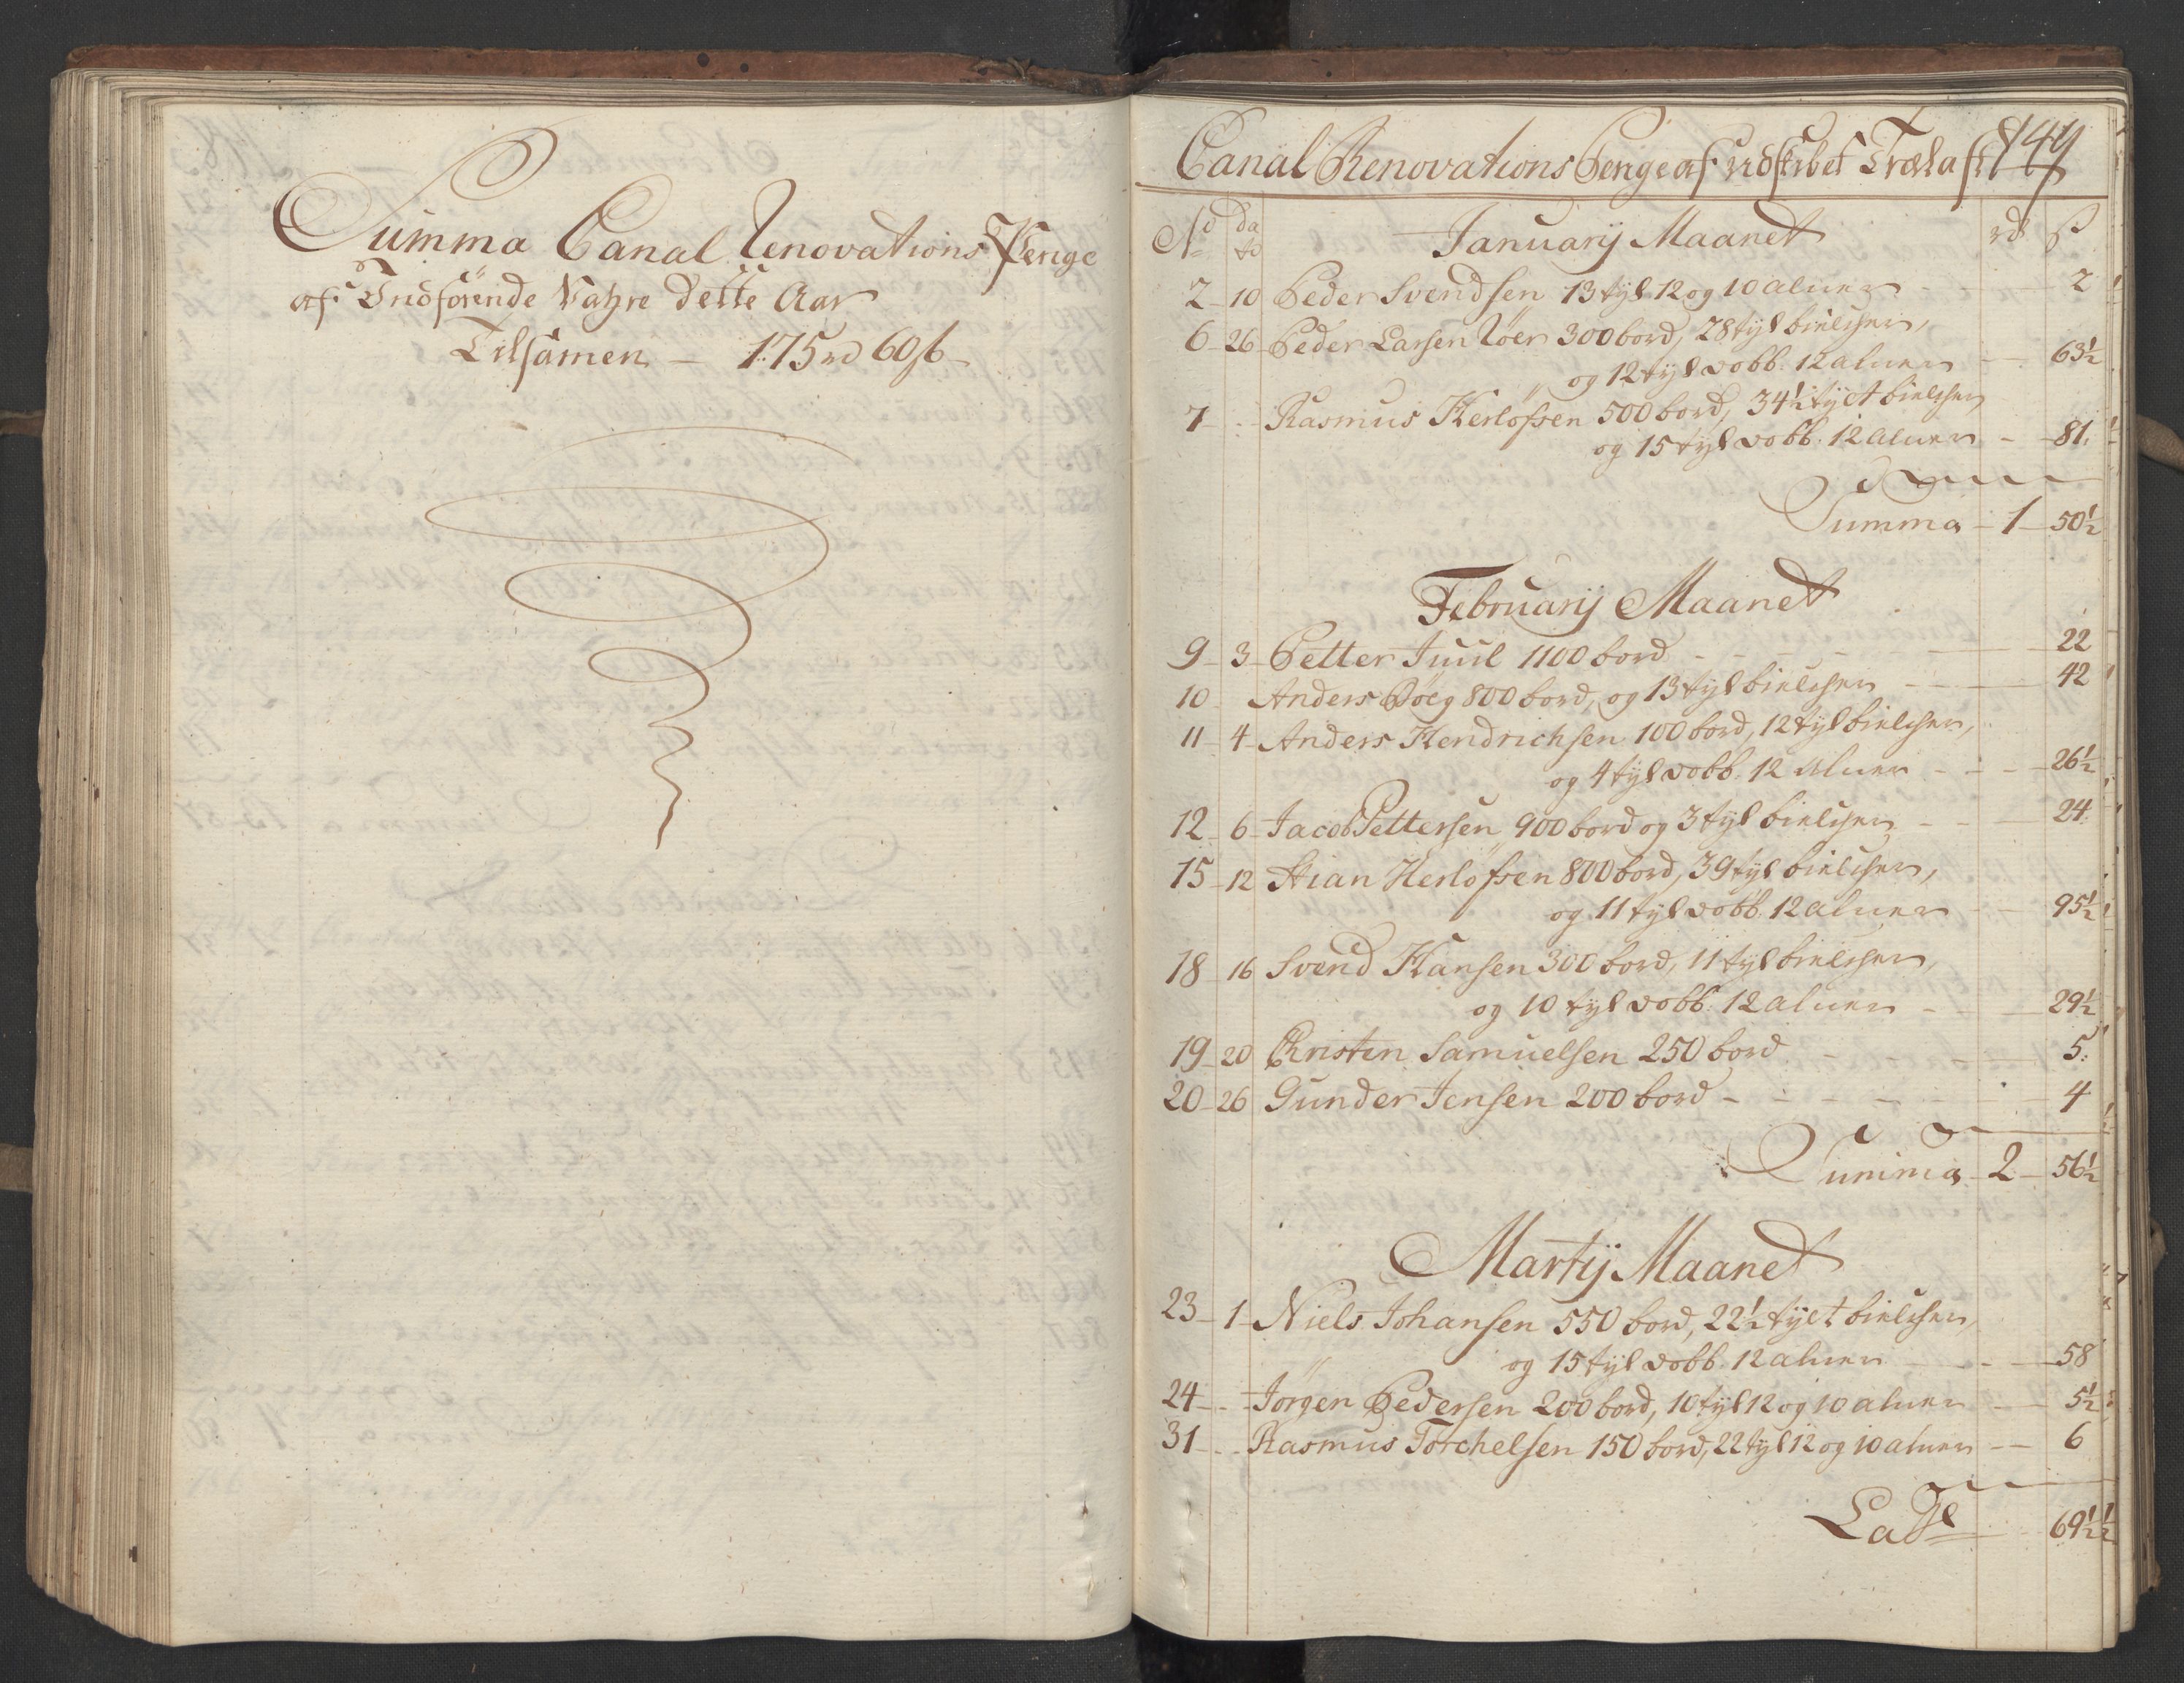 Summa Canal Renovations Penge
af Indförende Vahre dette Aar
Tilsamen — 175 rd 60 ß
Canal Renovations Penge af udskibet Trælast 149
No dato Januarij Maanet rd ß
2 10 Peder Svendsen 13 tyl 12 og 10 aluer 2
6 26 Peder Larsen Röer 300 bord, 28 tyl bielcher,
og 12 tyl dobb. 12 aluer 63½
7 Rasmus Herlofsen 500 bord, 34½ tylt bielcher
og 15 tyl dobb. 12 aluer 81.
Summa 1 50½
Februarij Maanet
9 3 Petter Juul 1100 bord 22
10 Anders Böeg 800 bord, og 13 tyl bielcher 42
11 4 Anders Hendrichsen 100 bord, 12 tyl bielcher,
og 4 tyl dobb. 12 aluer 26½
12 6 Jacob Pettersen 900 bord og 3 tyl bielcher 24.
15 12 Stian Herlofsen 800 bord, 39 tyl bielcher,
og 11 tyl dobb. 12 aluer 95½
18 16 Svend Hansen 300 bord, 11 tyl bielcher,
og 10 tyl dobb. 12 aluer 29½
19 20 Christen Samuelsen 250 bord 5.
20 26 Gunder Jensen 200 bord 4
Summa 2 56½
Martij Maanet
23 1 Niels Johansen 550 bord, 22½ tylt bielcher,
og 15 tyl dobb. 12 aluer 58
24 Jörgen Pedersen 200 bord, 10 tyl 12 og 10 aluer 5½
31 Rasmus Torchelsen 150 bord, 22 tyl 12 og 10 aluer 6
Lat 69½